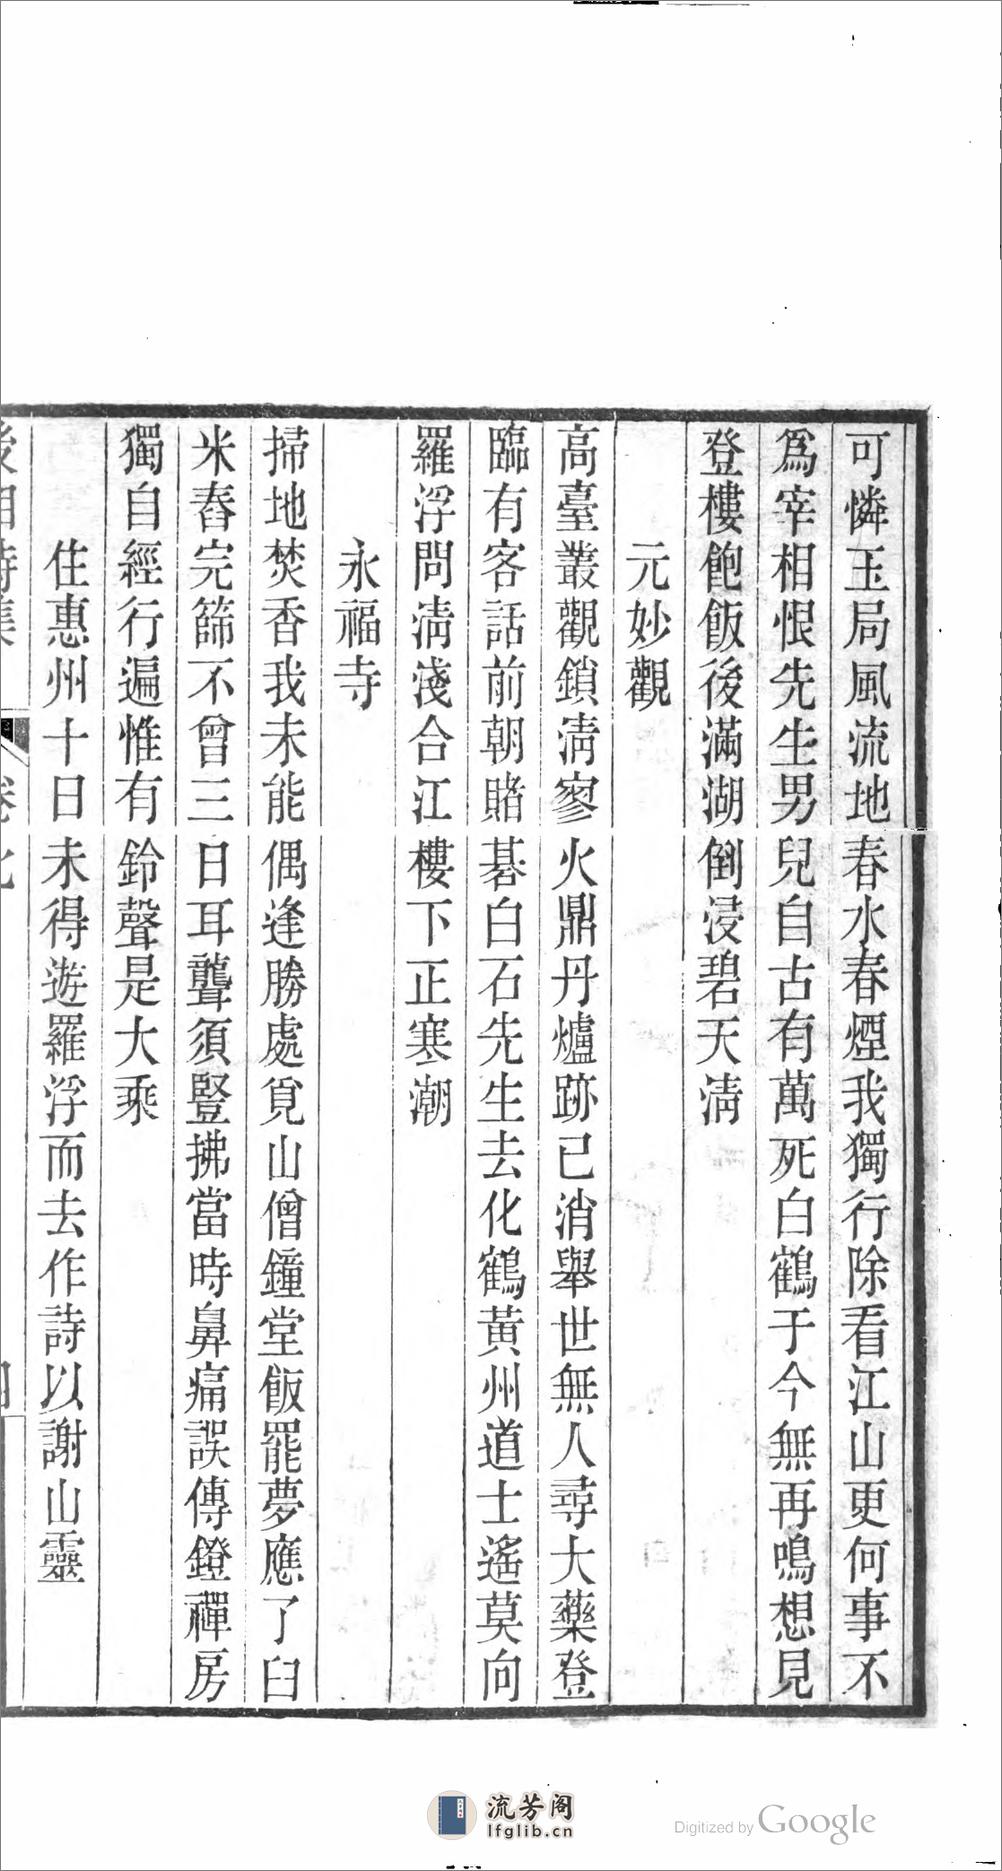 可憐玉局風流地春水春煙我獨行除看江山更何事不
爲宰相恨先生男兒自古有萬死白鶴于今無再鳴想見
登樓飽飯後滿湖倒浸碧天淸
元妙觀
高臺叢觀鎖淸寥火鼎丹爐跡已消舉世無人尋大藥登
臨有客話前朝賭碁白石先生去化鶴黃州道士遙莫向
羅浮問淸淺合江樓下正寒潮
永福寺
掃地焚香我未能偶逢勝處覓山僧鐘堂飯罷夢應了臼
米舂完篩不曾三日耳聾須豎拂當時鼻痛誤傳鐙禪房
獨自經行遍惟有鈴聲是大乘
住惠州十日未得遊羅浮而去作詩以謝山靈
流芳阁
lfglib.cn
Digitized by Google